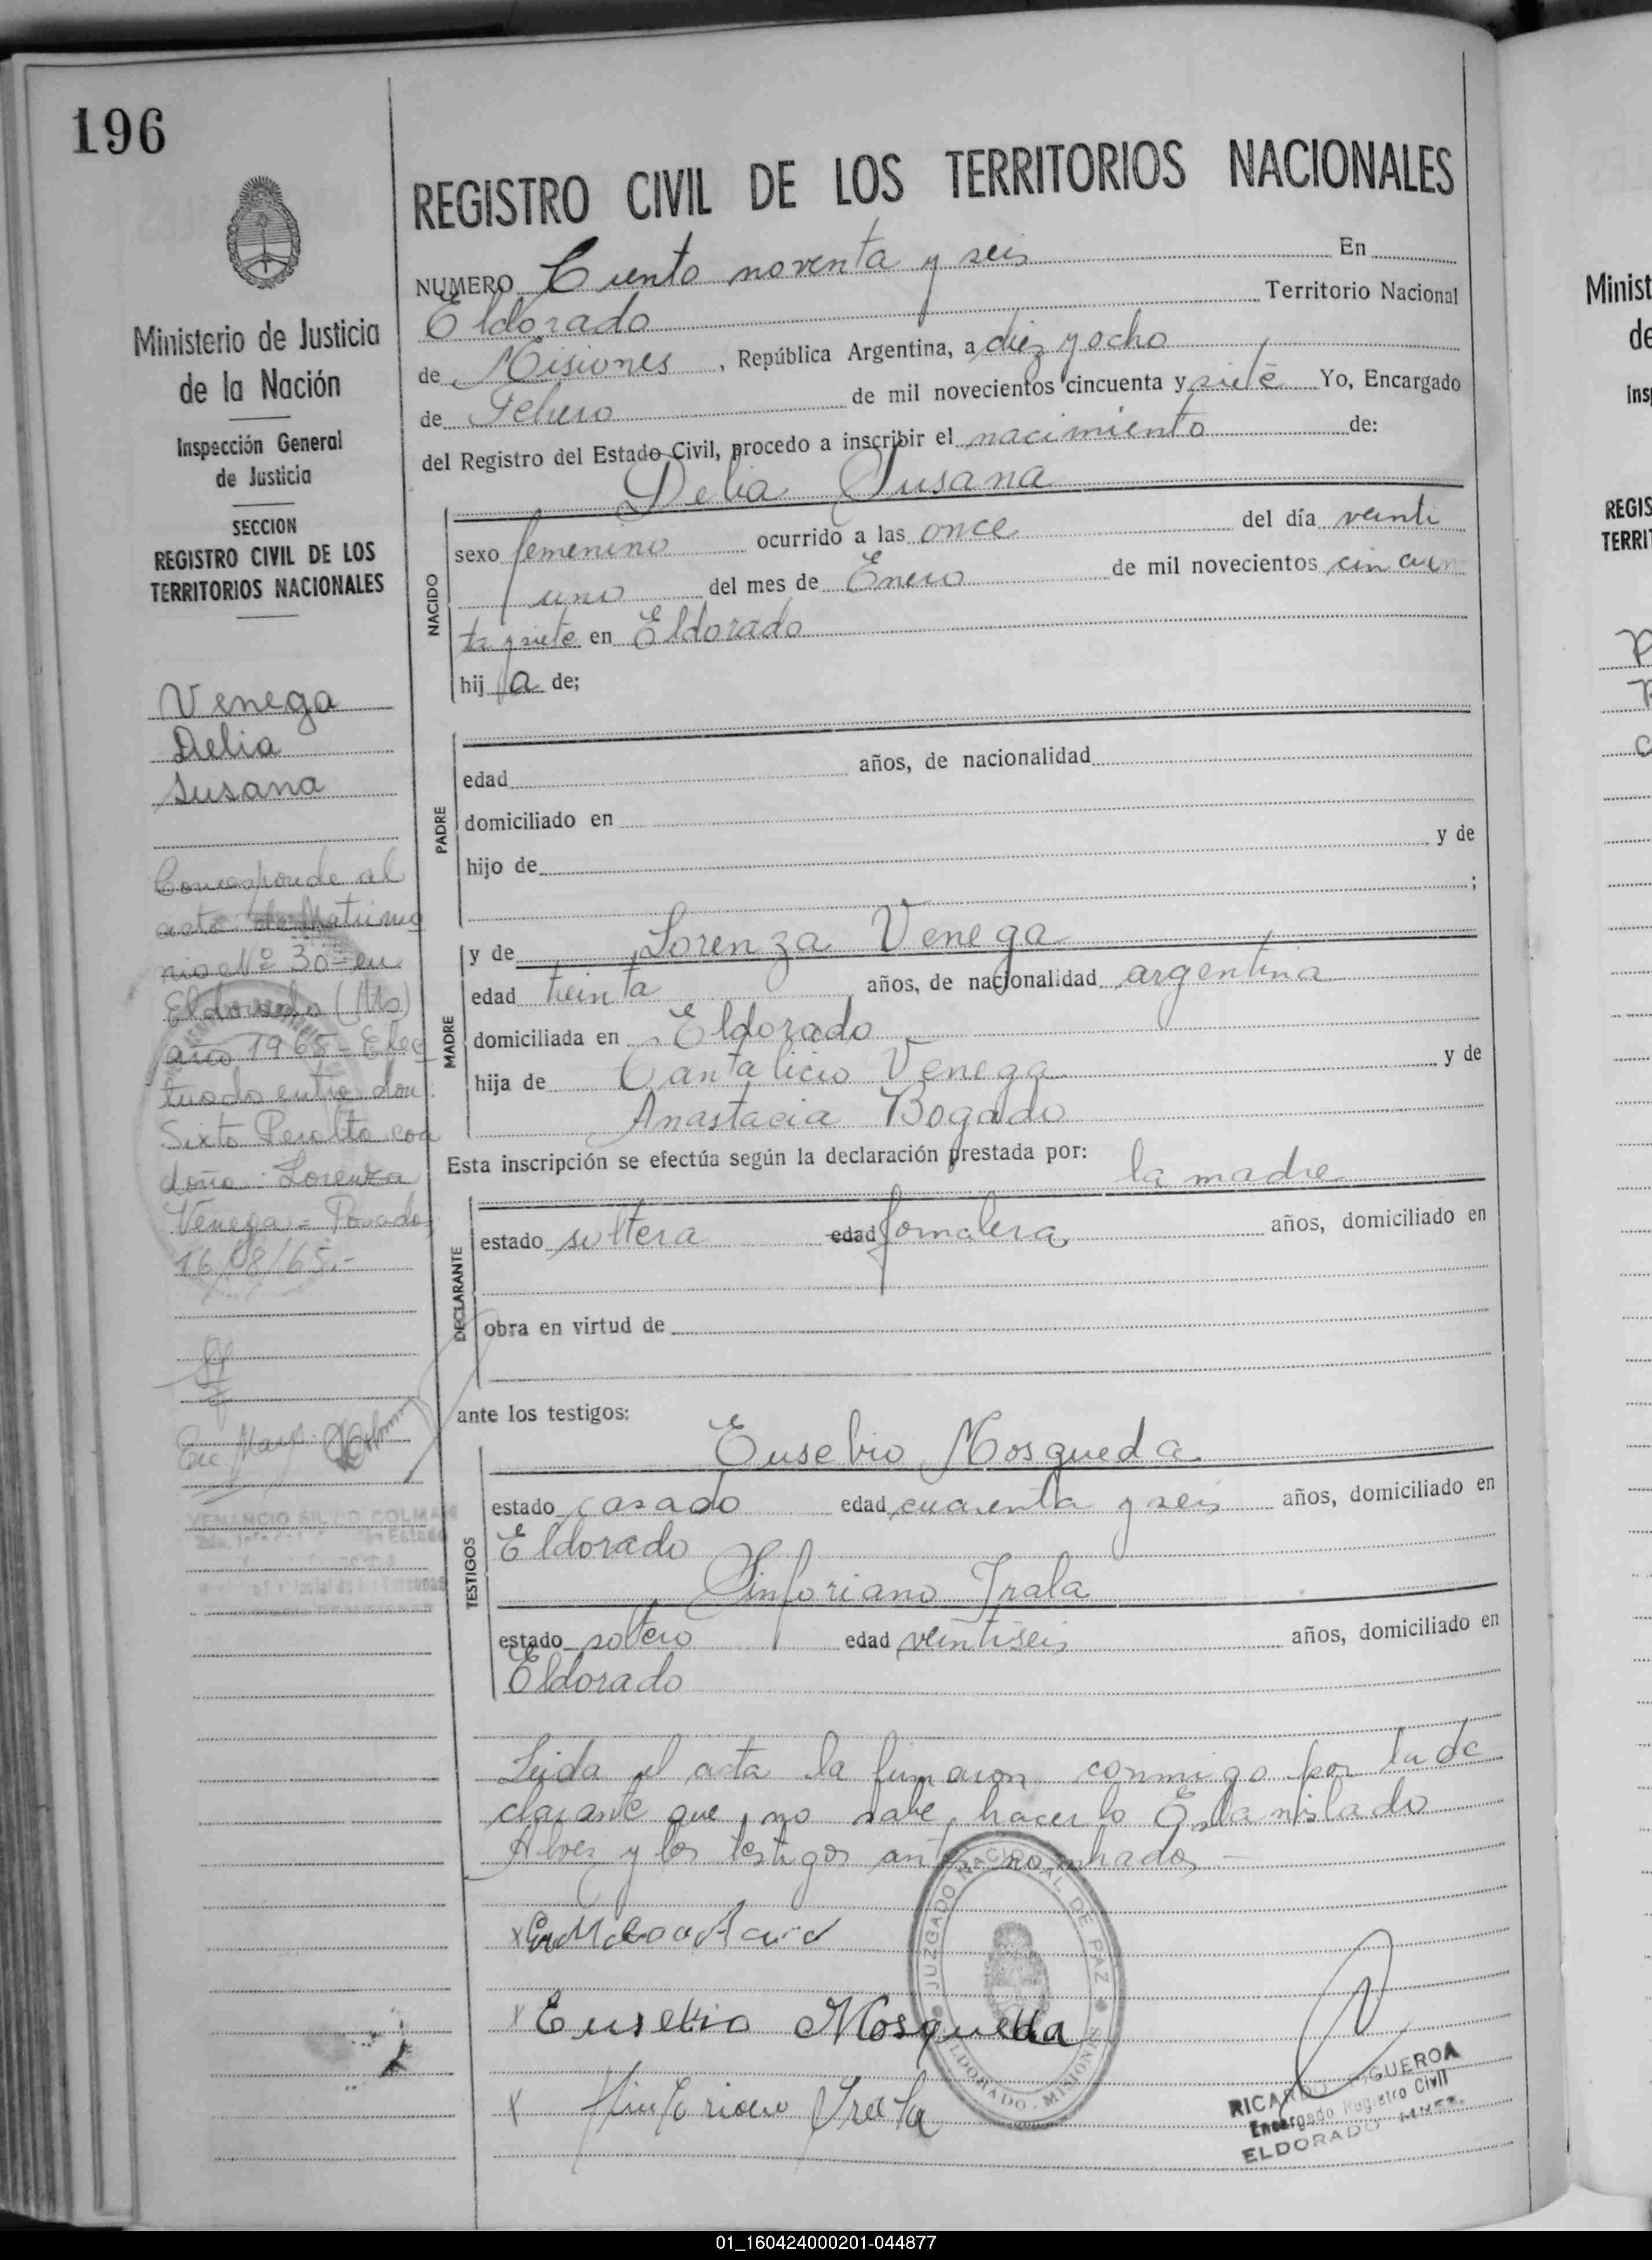 196
Ministerio de Justicia
de la Nación
Inspección General
de Justicia
SECCION
REGISTRO CIVIL DE LOS
TERRITORIOS NACIONALES
Venega
Delia
Susana
Corresponde al
acta de Matrimo
nio Nº 30 - en
Eldorado (Ms)
año 1965 - Efec
tuado entre don:
Sixto Peralta con
doña: Lorenza
Venega =
16/08/65.-
VENANCIO SILVIO COLMAN
REGISTRO CIVIL DE LOS TERRITORIOS NACIONALES
NUMERO Ciento noventa y seis En
Eldorado Territorio Nacional
de Misiones, República Argentina, a diez y ocho
de Febrero de mil novecientos cincuenta y siete Yo, Encargado
del Registro del Estado Civil, procedo a inscribir el nacimiento de:
Delia Susana
NACIDO
sexo femenino ocurrido a las once del día veinti
uno del mes de Enero de mil novecientos cincuen
ta y siete en Eldorado
hija de;
PADRE
edad años, de nacionalidad
domiciliado en
hijo de y de
;
MADRE
y de Lorenza Venega
edad treinta años, de nacionalidad argentina
domiciliada en Eldorado
hija de Cantalicio Venega y de
Anastacia Bogado
Esta inscripción se efectúa según la declaración prestada por: la madre
DECLARANTE
estado soltera edad jornalera años, domiciliado en
obra en virtud de
ante los testigos:
TESTIGOS
Eusebio Mosqueda
estado casado edad cuarenta y seis años, domiciliado en
Eldorado
Sinforiano Irala
estado soltero edad veintiseis años, domiciliado en
Eldorado
Leida el acta la firmaron conmigo por la de
clarante que no sabe hacerlo Estanislado
Alvez y los testigos antes nombrados -
JUZGADO NACIONAL DE PAZ
ELDORADO - MISIONES
x Eusebio Mosqueda
x Sinforiano Irala
RICARDO FIGUEROA
Encargado Registro Civil
ELDORADO
Minist
de
Ins
REGIS
TERRI
01_160424000201-044877